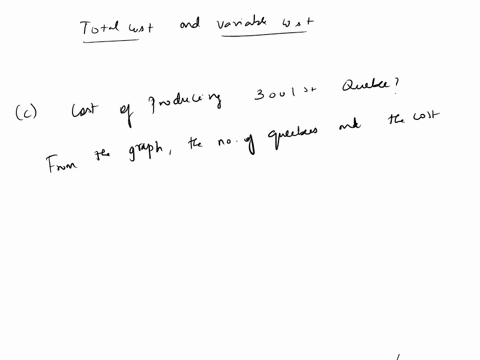 Total cost and variable cost
(c) Cost of producing 3001st Quebee?
From the graph, the no. of quebees and the cost